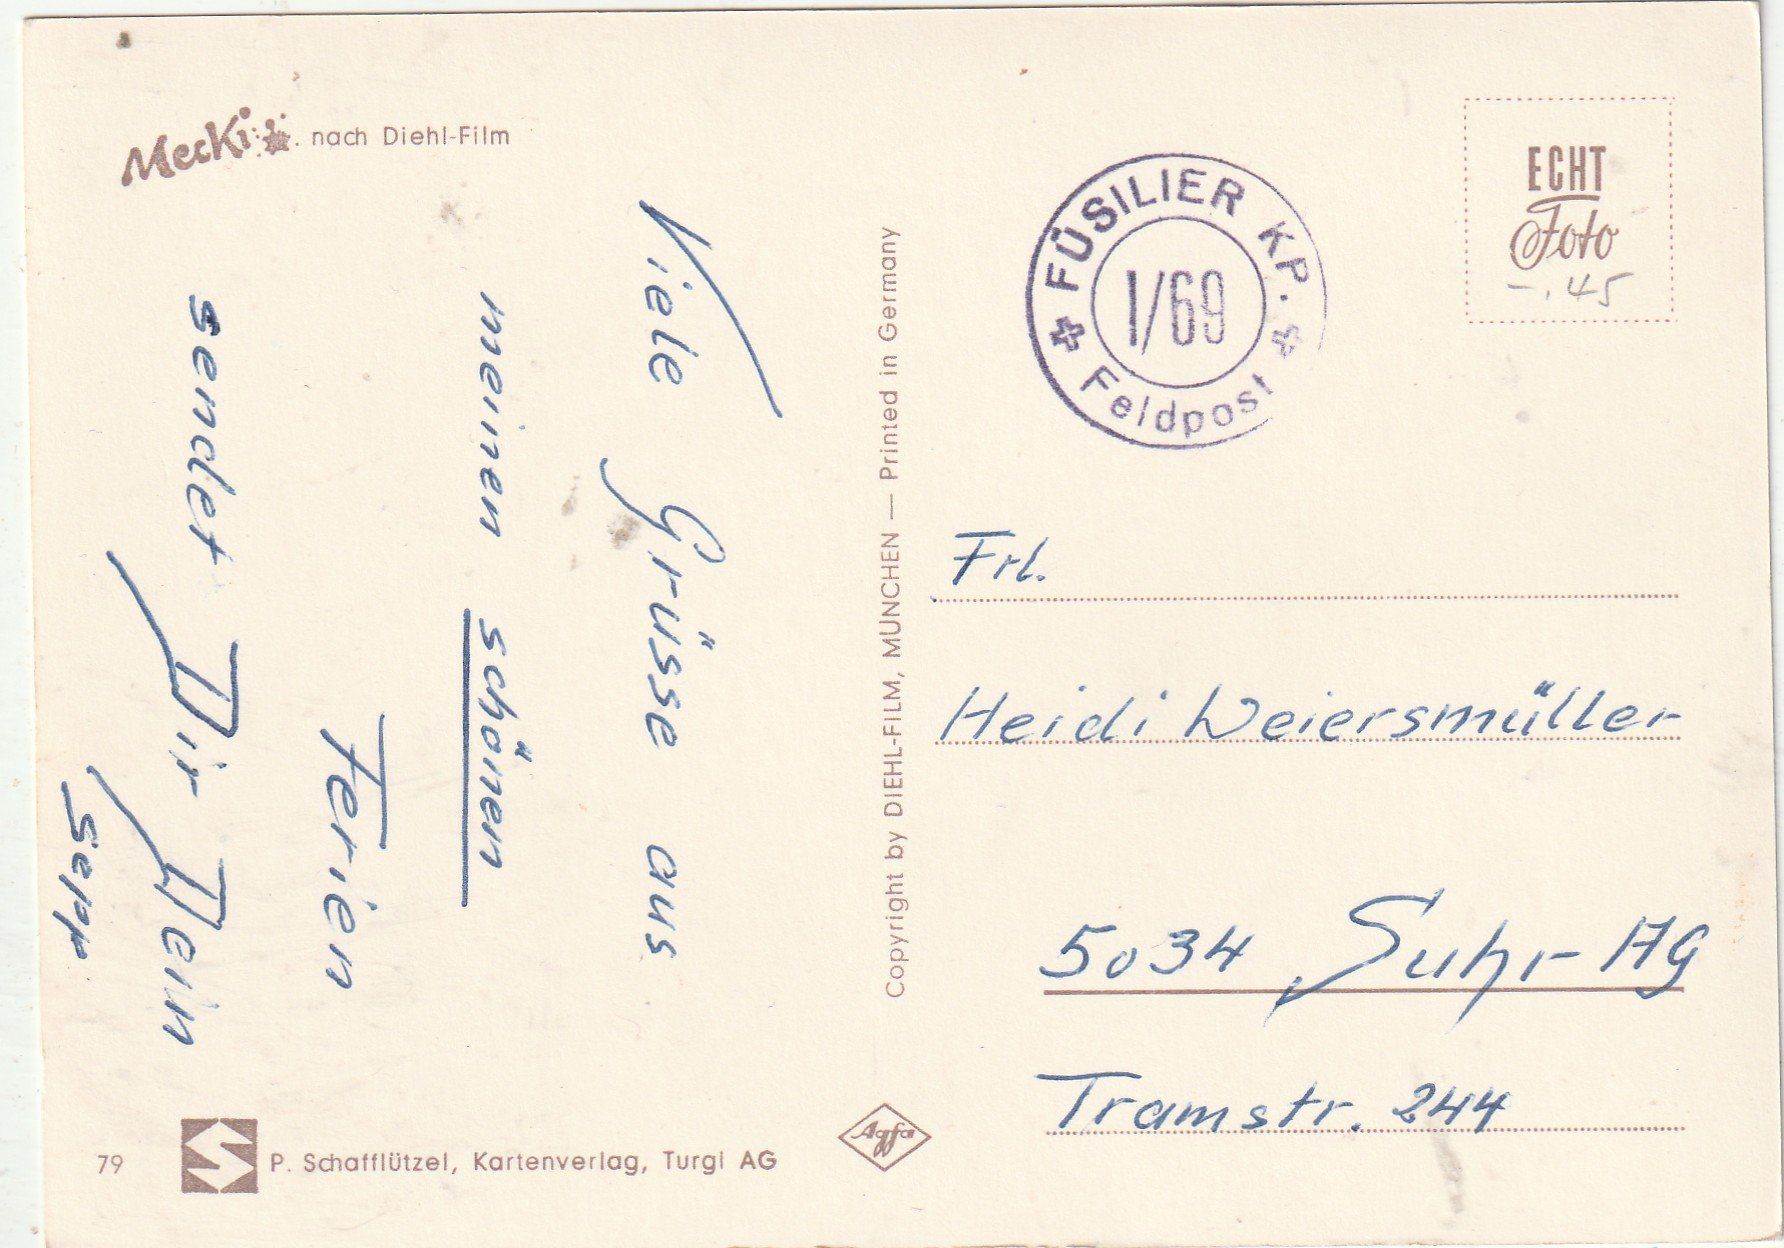 Mecki nach Diehl-Film
Viele Grüsse aus
meinen schönen
Ferien
sendet Dir Dein
Sepp
79
P. Schafflützel, Kartenverlag, Turgi AG
Copyright by DIEHL-FILM, MÜNCHEN — Printed in Germany
Agfa
FÜSILIER KP.
I/69
Feldpost
ECHT
Foto
-.45
Frl.
Heidi Weiersmüller
5034 Suhr AG
Tramstr. 244